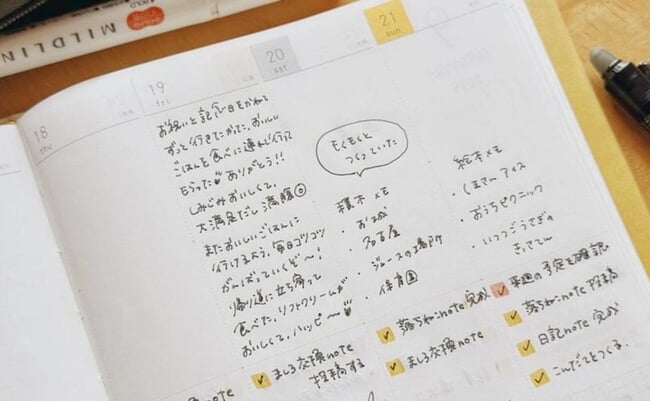 MILDLIN
18
thu
19
fri
お祝いと記念日をかねて
ずっと行きたかった、おいしい
ごはんを食べに連れて行って
もらった ありがとう!!
しみじみおいしくて、
大満足だし満腹
またおいしいごはんに
行けるよう、毎日コツコツ
がんばっていくぞ〜!
帰り道に立ち寄って
食べた、ソフトクリームが
おいしくて、ハッピ〜
note
20
sat
もくもくと
つくっていた
積木メモ
・お城
・名古屋
・ジュースの場所
・保育園
ましろ交換note
投稿する
21
sun
絵本メモ
・しろさんアイス
・おうちピクニック
・いつつごうさぎの
きってん
落ちねこnote完成
ましろ交換note
来週の予定を確認
落ちねこnote投稿
日記note完成
こんだてをつくる。